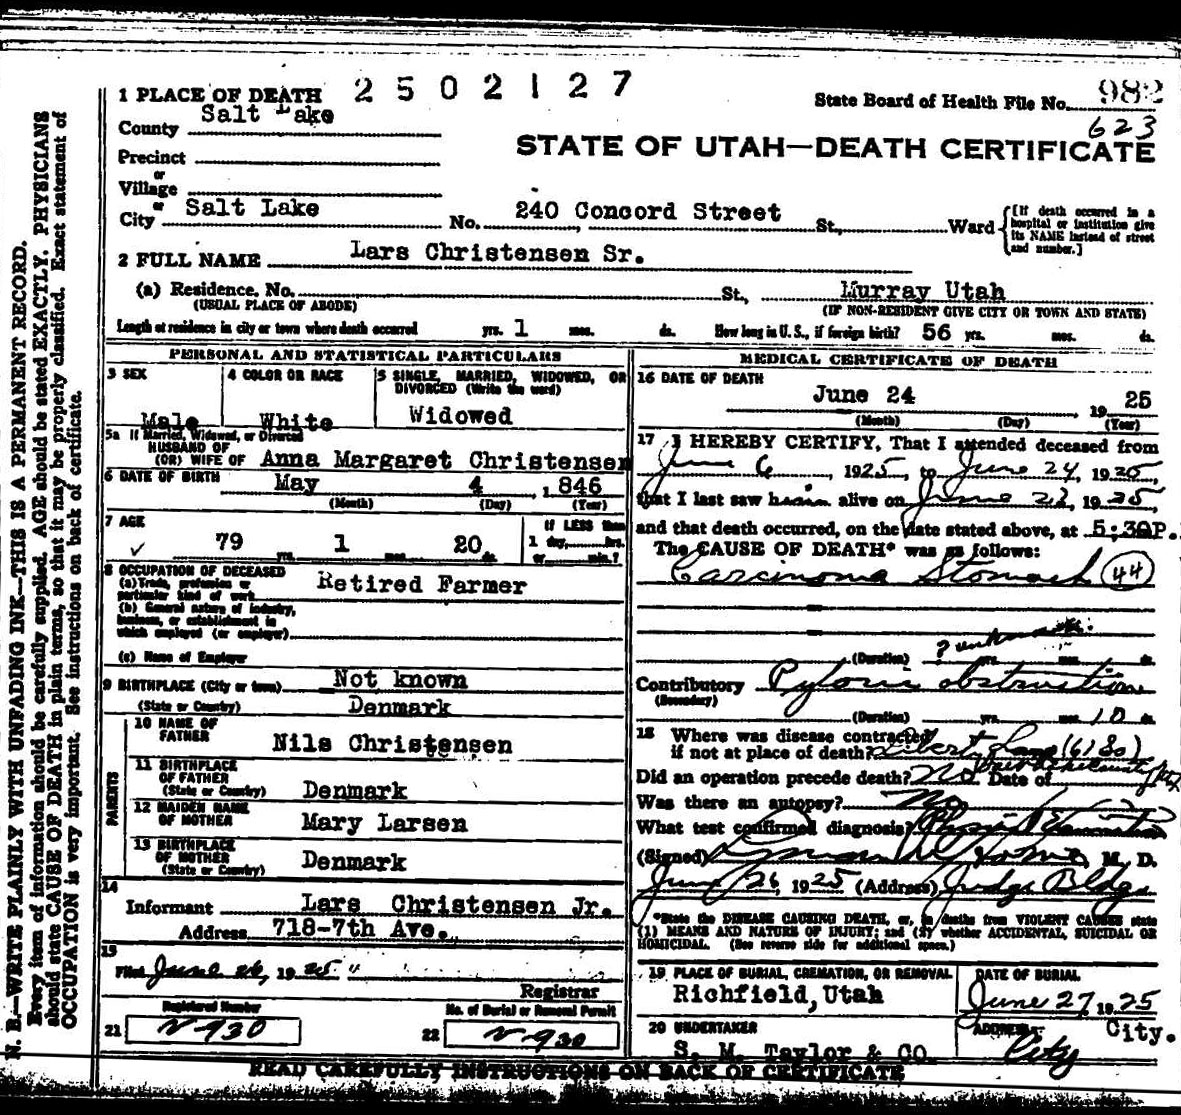 N. B.—WRITE PLAINLY WITH UNFADING INK—THIS IS A PERMANENT RECORD.
Every item of information should be carefully supplied. AGE should be stated EXACTLY. PHYSICIANS
should state CAUSE OF DEATH in plain terms, so that it may be properly classified. Exact statement of
OCCUPATION is very important. See instructions on back of certificate.
2502127
State Board of Health File No. 982
623
1 PLACE OF DEATH
County Salt Lake
STATE OF UTAH—DEATH CERTIFICATE
Precinct
or
Village
or
City Salt Lake No. 240 Concord Street St., Ward
[If death occurred in a
hospital or institution give
its NAME instead of street
and number.]
2 FULL NAME Lars Christensen Sr.
(a) Residence. No. St., Murray Utah
(USUAL PLACE OF ABODE) (IF NON-RESIDENT GIVE CITY OR TOWN AND STATE)
Length of residence in city or town where death occurred yrs. 1 mos. ds. How long in U. S., if foreign birth? 56 yrs. mos. ds.
PERSONAL AND STATISTICAL PARTICULARS
3 SEX
Male
4 COLOR OR RACE
White
5 SINGLE, MARRIED, WIDOWED, OR
DIVORCED (Write the word)
Widowed
5a If Married, Widowed, or Divorced
HUSBAND OF
(OR) WIFE OF Anna Margaret Christensen
6 DATE OF BIRTH May 4, 1846
(Month) (Day) (Year)
7 AGE
79 yrs. 1 mos. 20 ds.
If LESS than
1 day, hrs.
or min.?
8 OCCUPATION OF DECEASED
(a) Trade, profession or
particular kind of work Retired Farmer
(b) General nature of industry,
business, or establishment in
which employed (or employer)
(c) Name of Employer
9 BIRTHPLACE (City or town) Not known
(State or Country) Denmark
PARENTS
10 NAME OF
FATHER Nils Christensen
11 BIRTHPLACE
OF FATHER
(State or Country) Denmark
12 MAIDEN NAME
OF MOTHER Mary Larsen
13 BIRTHPLACE
OF MOTHER
(State or Country) Denmark
14
Informant Lars Christensen Jr.
Address 718-7th Ave.
15
Filed June 26, 1925
Registrar
Registered Number
21 V-930
No. of Burial or Removal Permit
22 V-930
MEDICAL CERTIFICATE OF DEATH
16 DATE OF DEATH
June 24, 1925
(Month) (Day) (Year)
17 I HEREBY CERTIFY, That I attended deceased from
June 6, 1925, to June 24, 1925,
that I last saw him alive on June 1925,
and that death occurred, on the date stated above, at 5:30P.
The CAUSE OF DEATH* was as follows:
Carcinoma Stomach (44)
(Duration) ? unknown yrs. mos. ds.
Contributory Pyloric obstruction
(Secondary)
(Duration) yrs. mos. 10 ds.
18 Where was disease contracted
if not at place of death? (6180)
Did an operation precede death? No Date of
Was there an autopsy? No
What test confirmed diagnosis? Physical Examination
(Signed) M. D.
June 26, 1925 (Address) Judge Bldg
*State the DISEASE CAUSING DEATH, or, in deaths from VIOLENT CAUSES state
(1) MEANS AND NATURE OF INJURY; and (2) whether ACCIDENTAL, SUICIDAL OR
HOMICIDAL. (See reverse side for additional space.)
19 PLACE OF BURIAL, CREMATION, OR REMOVAL
Richfield, Utah
DATE OF BURIAL
June 27, 1925
20 UNDERTAKER
S. M. Taylor & CO.
ADDRESS City.
City
READ CAREFULLY INSTRUCTIONS ON BACK OF CERTIFICATE